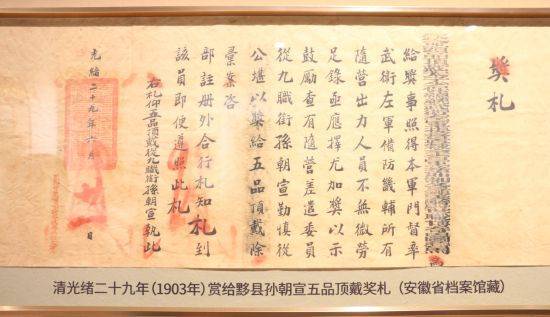 獎札
給獎事照得本軍門督率
武衛左軍備防畿輔所有
隨營出力人員不無微勞
足錄亟應擇尤加獎以示
鼓勵查有隨營差遣委員
從九職銜孫朝宣勤慎從
公堪以獎給五品頂戴除
彙案咨
部註冊外合行札知札到
該員即便遵照此札
右札仰五品頂戴從九職銜孫朝宣執此
光緒二十九年六月 日
清光绪二十九年(1903年)赏给黟县孙朝宣五品顶戴奖札(安徽省档案馆藏)